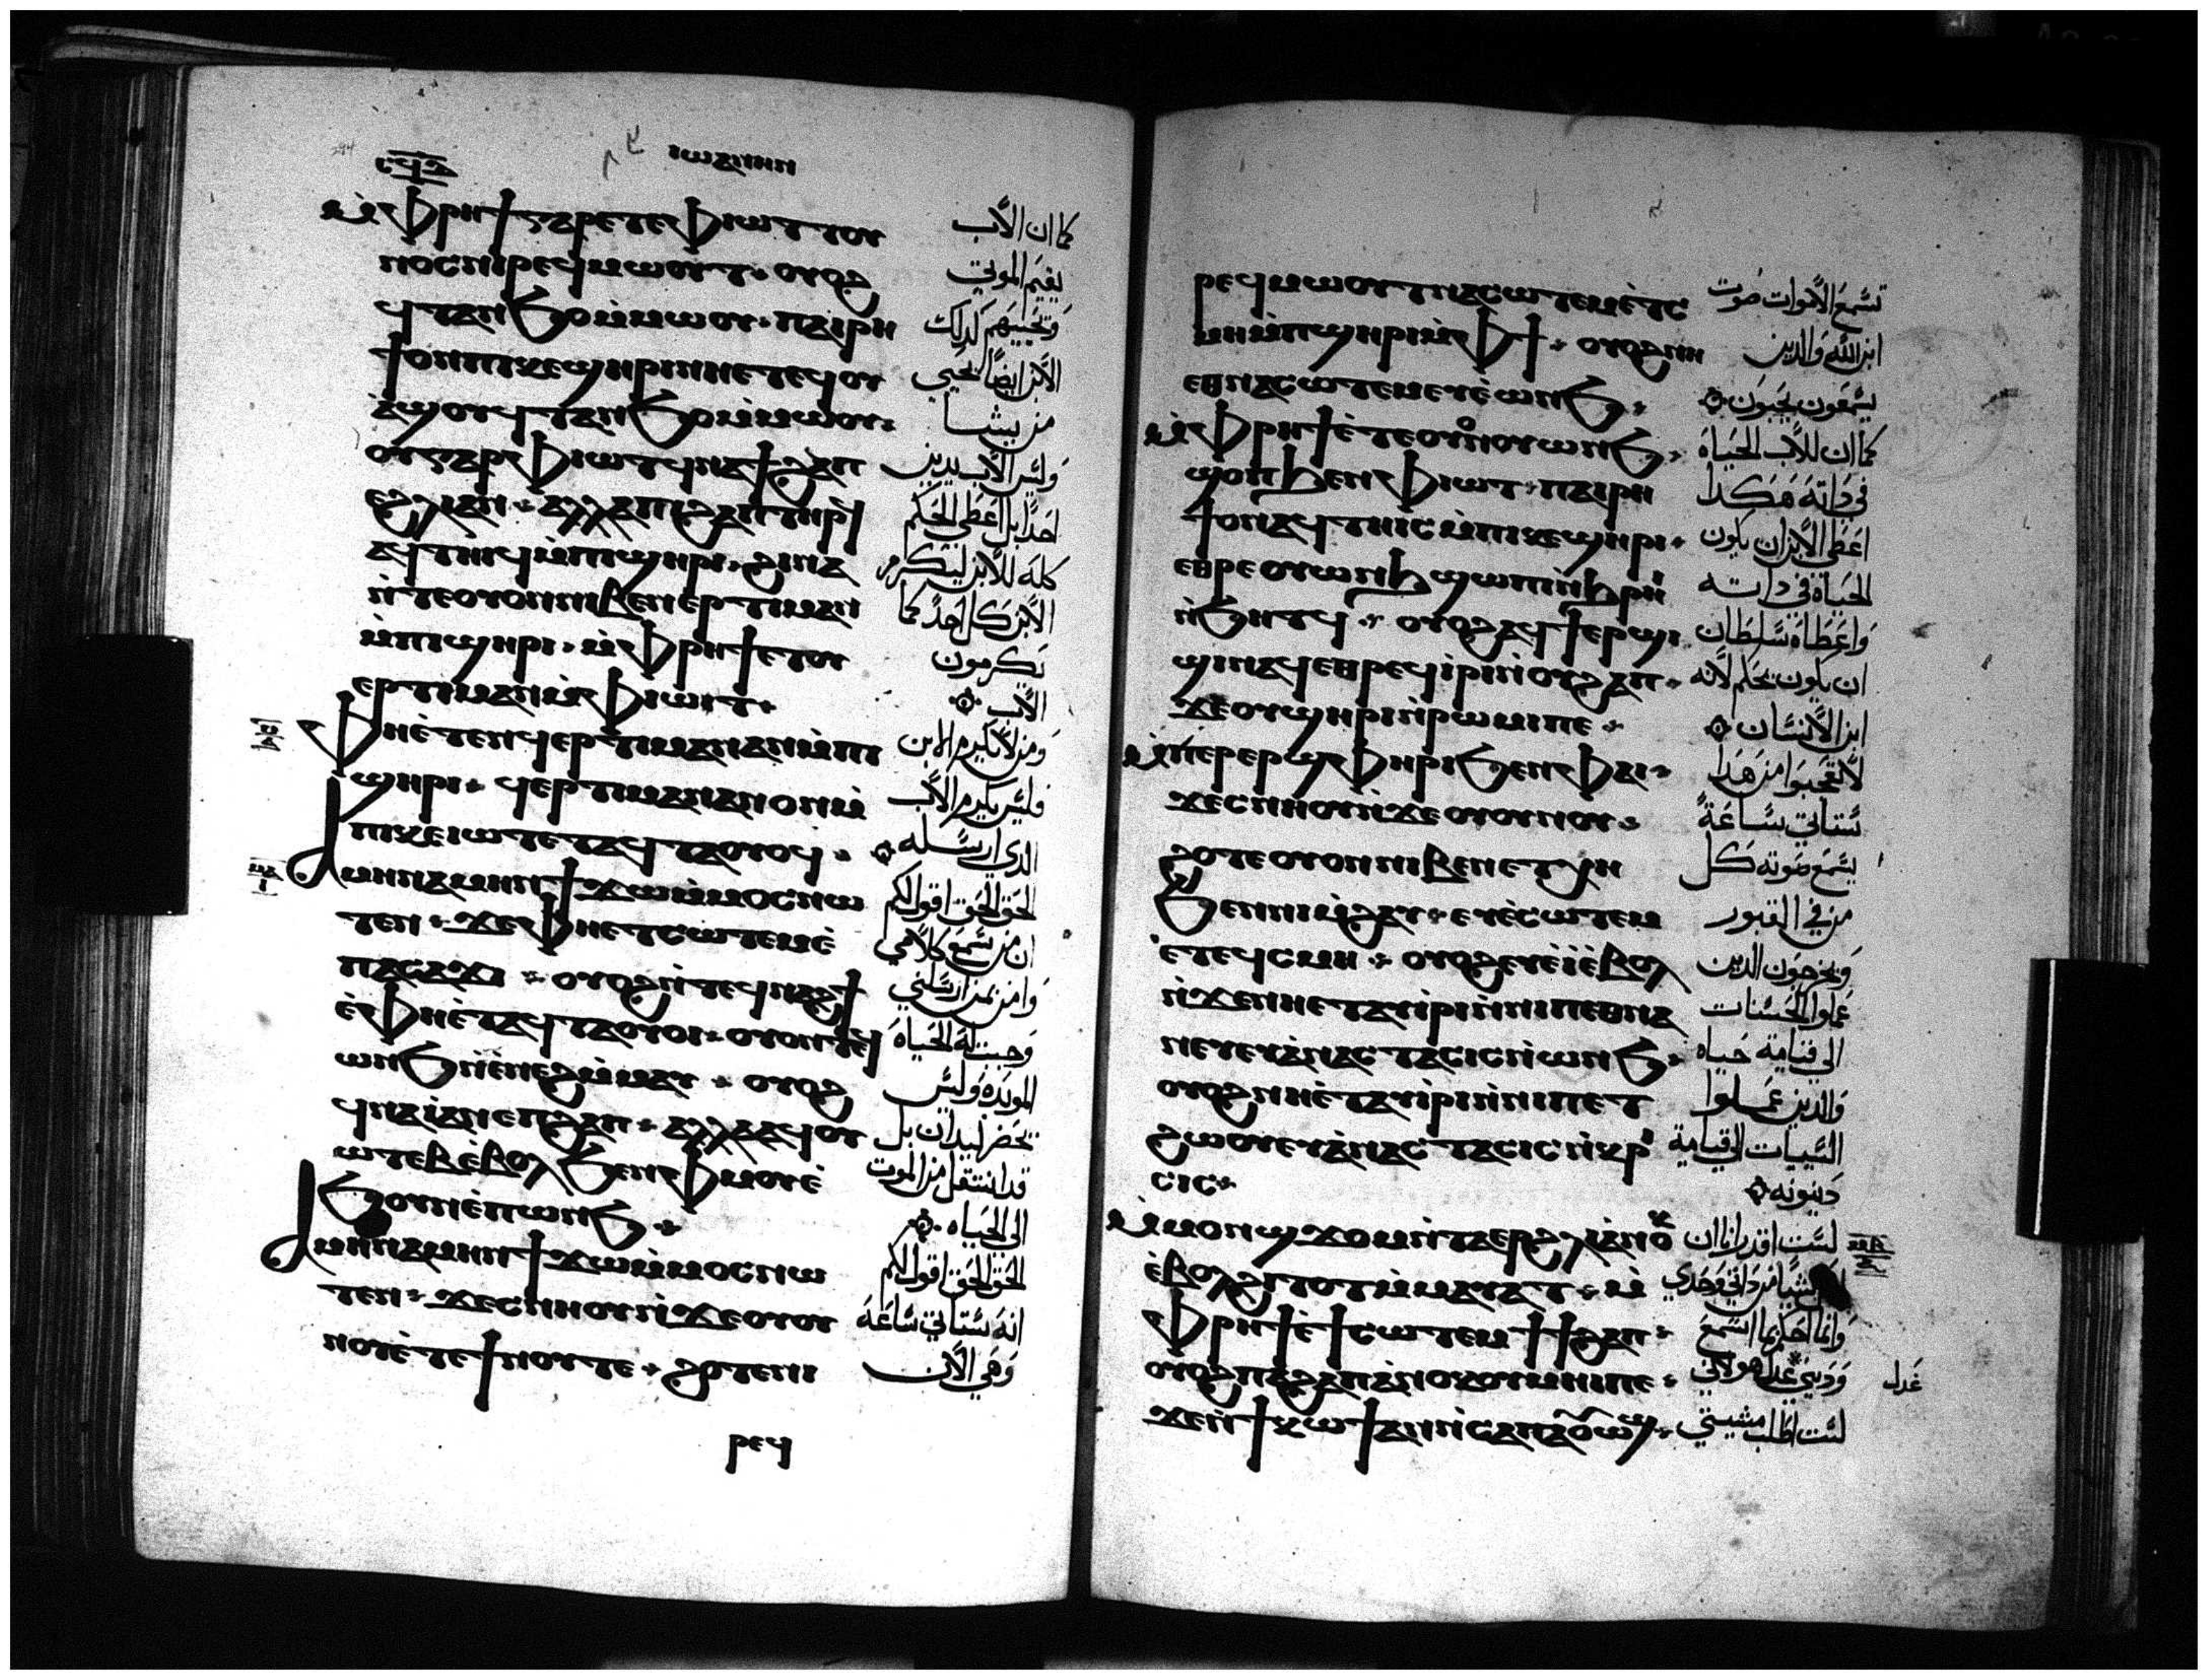 ⲓⲱⲁⲛⲛⲏⲛ
ⲙ̀ⲫⲣⲏϯ ⲅⲁⲣ ⲉⲧⲉ ⲫⲓⲱⲧ ⲧⲟⲩ
ⲛⲟⲥ ⲛⲓⲣⲉϥⲙⲱⲟⲩⲧ · ⲟⲩⲟϩ
ϥⲧⲁⲛϧⲟ ⲙ̀ⲙⲱⲟⲩ · ⲡⲁⲓⲣⲏ
ϯ ⲟⲛ ⲡⲓⲕⲉϣⲏⲣⲓ ⲛⲏⲉⲧⲉϥⲟⲩ
ⲁ̀ϣⲟⲩ ϥⲧⲁⲛϧⲟ ⲙ̀ⲙⲱⲟⲩ ·
ⲟⲩ ⲅⲁⲣ ⲫⲓⲱⲧ ϥⲛⲁϯϩⲁⲡ
ⲉϩⲗⲓ ⲁⲛ · ⲁⲗⲗⲁ ⲡⲓϩⲁⲡ ⲧⲏⲣϥ
ⲁϥⲧⲏⲓϥ ⲙ̀ⲡⲓϣⲏⲣⲓ · ϩⲓⲛⲁ
ⲛ̀ⲧⲉ ⲟⲩⲟⲛ ⲛⲓⲃⲉⲛ ⲉⲣⲧⲓⲙⲁⲛ
ⲙ̀ⲡⲓϣⲏⲣⲓ · ⲙ̀ⲫⲣⲏϯ ⲉⲧⲟⲩ
ⲉⲣⲧⲓⲙⲁⲛ ⲙ̀ⲫⲓⲱⲧ ·
ⲫⲏⲉ̀ⲧⲉⲛϥⲉⲣⲧⲓⲙⲁⲛ ⲁⲛ ⲙ̀ⲡⲓ
ϣⲏⲣⲓ · ϥⲉⲣⲧⲓⲙⲁⲛ ⲁⲛ ⲟⲛ ⲙ̀
ⲡⲓⲕⲉⲓⲱⲧ ⲉⲧⲁϥⲧⲁⲟⲩⲟϥ ·
ⲁⲙⲏⲛ ⲁⲙⲏⲛ ϯϫⲱ ⲙ̀ⲙⲟⲥ ⲛⲱ
ⲧⲉⲛ · ϫⲉ ⲫⲏⲉⲧⲥⲱⲧⲉⲙ ⲉ̀
ⲡⲁⲥⲁϫⲓ · ⲟⲩⲟϩ ⲛ̀ⲧⲉϥⲛⲁϩϯ
ⲉ̀ⲫⲏⲉ̀ⲧⲁϥⲧⲁⲟⲩⲟⲓ · ⲟⲩⲟⲛⲧⲉϥ
ⲱⲛϧ ⲛ̀ⲉ̀ⲛⲉϩ ⲙ̀ⲙⲁⲩ · ⲟⲩⲟϩ
ϥⲛⲁⲓ̀ ⲁⲛ ⲉⲡϩⲁⲡ · ⲁⲗⲗⲁ ⲁϥⲟⲩ
ⲱⲧⲉⲃ ⲉ̀ⲃⲟⲗ ϧⲉⲛ ⲫⲙⲟⲩ ⲉ̀
ϧⲟⲩⲛ ⲉ̀ⲡⲱⲛϧ ·
ⲁⲙⲏⲛ ⲁⲙⲏⲛ ϯϫⲱ ⲙ̀ⲙⲟⲥ ⲛⲱ
ⲧⲉⲛ · ϫⲉ ⲥⲛⲏⲟⲩ ⲛ̀ϫⲉ ⲟⲩⲟⲩ
ⲛⲟⲩ ⲉ̀ⲧⲉ ϯⲛⲟⲩ ⲧⲉ · ϩⲟⲧⲉ ⲛⲓ
ⲣⲉϥ
كما ان الاب
يقيم الموتي
ويحييهم كدلك
الابن ايضا يحيي
من يشا
وليس الاب يدين
احدا بل اعطي الحكم
كله للابن ليكرم
الابن كل احد كما
يكرمون
الاب
ومن لا يكرم الابن
فليس يكرم الاب
الدي ارسله
الحق الحق اقول لكم
ان من يسمع كلامي
وامن بمن ارسلني
وجبت له الحياه
الموبده وليس
يحضر ليدان بل
قد انتقل من الموت
الي الحياه
الحق الحق اقول لكم
انه ستاتي ساعه
وهي الان
ⲣⲉϥⲙⲱⲟⲩⲧ ⲛⲁⲥⲱⲧⲉⲙ ⲉ̀ⲧⲥ
ⲙⲏ ⲙ̀ⲡϣⲏⲣⲓ ⲙ̀ⲫϯ · ⲟⲩⲟϩ ⲛⲏ
ⲉⲑⲛⲁⲥⲱⲧⲉⲙ ⲉⲩⲉ̀ⲱⲛϧ ·
ⲙ̀ⲫⲣⲏϯ ⲉ̀ⲧⲉ ⲟⲩⲟⲛ ⲟⲩⲱⲛϧ ·
ϣⲟⲡ ϧⲉⲛ ⲫⲓⲱⲧ · ⲡⲁⲓⲣⲏ
ϯ ⲟⲛ ⲁϥⲧⲏⲓⲥ ⲙ̀ⲡⲓⲕⲉϣⲏⲣⲓ ·
ⲉⲑⲣⲉ ⲟⲩⲱⲛϧ ϣⲱⲡⲓ ⲛ̀ϧⲣⲏⲓ
ⲛ̀ϧⲏⲧϥ · ⲟⲩⲟϩ ⲁϥϯⲉⲣϣⲓ
ϣⲓ ⲛⲁϥ ⲉⲑⲣⲉϥⲓ̀ⲣⲓ ⲛ̀ⲟⲩϩⲁⲡ ·
ϫⲉ ⲟⲩϣⲏⲣⲓ ⲛ̀ⲣⲱⲙⲓ ⲡⲉ ·
ⲙ̀ⲡⲉⲣⲉⲣϣⲫⲏⲣⲓ ϧⲉⲛ ⲫⲁⲓ ·
ϫⲉ ⲥⲛⲏⲟⲩ ⲛ̀ϫⲉ ⲟⲩⲟⲩⲛⲟⲩ ·
ϩⲟⲧⲉ ⲟⲩⲟⲛ ⲛⲓⲃⲉⲛ ⲉⲧⲭⲏ
ϧⲉⲛ ⲛⲓⲙ̀ϩⲁⲩ · ⲉⲩⲉ̀ⲥⲱⲧⲉⲙ
ⲉ̀ⲧⲉϥⲥⲙⲏ · ⲟⲩⲟϩ ⲉⲩⲉ̀ⲓ̀ ⲉ̀ⲃⲟⲗ
ⲛ̀ϫⲉ ⲛⲏⲉⲧⲁⲩⲓ̀ⲣⲓ ⲛ̀ⲛⲓⲡⲉⲑⲛⲁ
ⲛⲉⲩ ⲉⲩⲁ̀ⲛⲁⲥⲧⲁⲥⲓⲥ ⲛ̀ⲱⲛϧ ·
ⲟⲩⲟϩ ⲛⲏⲉ̀ⲧⲁⲩⲓ̀ⲣⲓ ⲛ̀ⲛⲓⲡⲉⲧ
ϩⲱⲟⲩ ⲉⲩⲁ̀ⲛⲁⲥⲧⲁⲥⲓⲥ ⲛ̀ⲕⲣⲓ
ⲥⲓⲥ ·
ⲙ̀ⲙⲟⲛ ϣϫⲟⲙ ⲛ̀ⲧⲁⲉⲣ ϩⲗⲓ ⲁ̀ⲛⲟⲕ
ⲉ̀ⲃⲟⲗ ϩⲓⲧⲟⲧ ⲙ̀ⲙⲁⲩⲁⲧ · ⲙ̀
ⲫⲣⲏϯ ⲉ̀ϯⲥⲱⲧⲉⲙ ϯϯϩⲁⲡ ·
ⲟⲩⲟϩ ⲡⲁϩⲁⲡ ⲁⲛⲟⲕ ⲟⲩⲙⲏⲓ ⲡⲉ ·
ϫⲉ ⲛ̀ϯⲕⲱϯ ⲁⲛ ⲛ̀ⲥⲁ ⲡⲁⲟⲩⲱϣ ·
تسمع الاموات صوت
ابن الله والدين
يسمعون يحيون
كما ان للاب الحياة
في داته هكدا
اعطي الابن ان يكون
الحياة في داته
واعطاه سلطان
ان يكون يحكم لانه
ابن الانسان
لا تعجبوا من هدا
ستاتي ساعة
يسمع صوته كل
من في القبور
ويخرجون الدين
عملوا الحسنات
الي قيامة حياه
والدين عملوا
السيات الي قيامة
دينونه
لست اقدر انا ان
شيا من داتي وحدي
وانما احكم بما اسمع
عدل
لست اطلب مشيتي